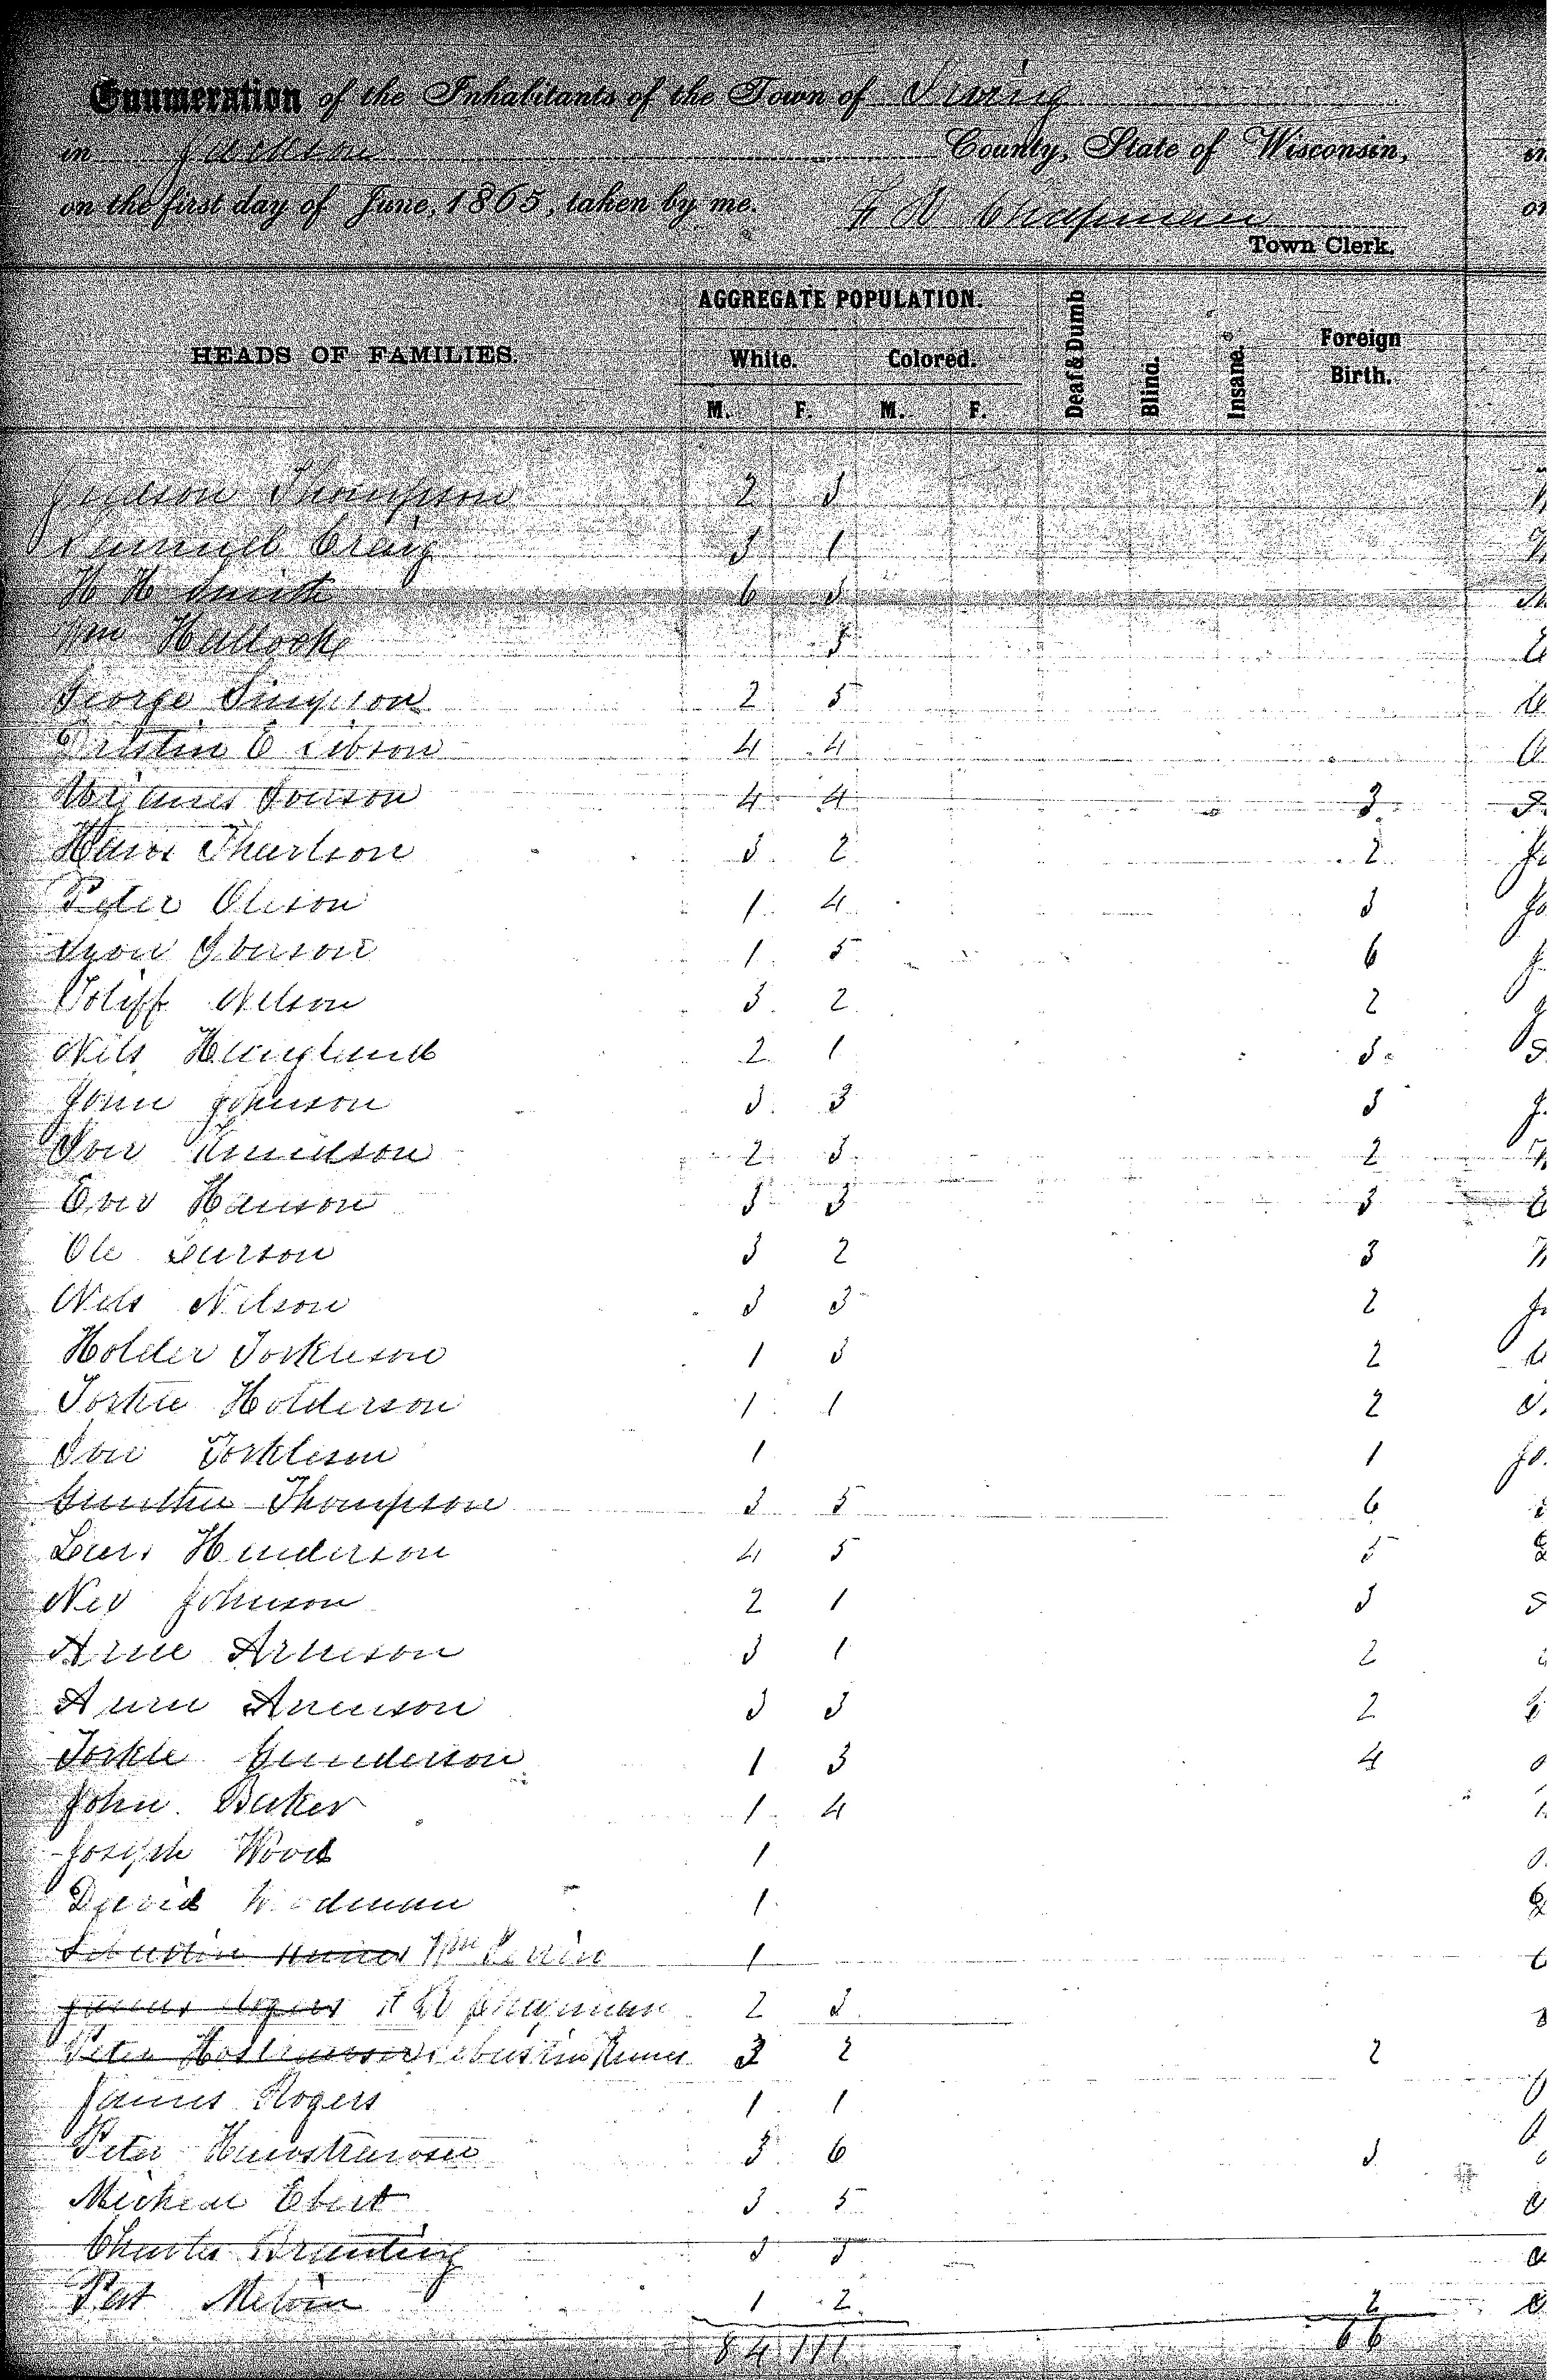 Enumeration of the Inhabitants of the Town of Irving
in Jackson County, State of Wisconsin,
on the first day of June, 1865, taken by me. F W Chapman
Town Clerk.
HEADS OF FAMILIES. AGGREGATE POPULATION. Deaf & Dumb Blind. Insane. Foreign Birth.
White. Colored.
M. F. M. F.
Judson Thompson 2 3
Samuel Craig 3 1
H H Smith 6 3
Wm Hallock 3
George Simpson 2 5
4 4
4 4 3
Hans 3 2 2
Peter Oleson 1 4 3
Iverson 1 5 6
Toliff Nelson 3 2 2
Nils Haugland 2 1 3
John Johnson 3 3 3
Iver Knudson 2 3 2
Ever Hanson 3 3 3
Ole Larson 3 2 3
Nels Nilson 3 3 2
Holder Torkleson 1 3 2
Torkle Holderson 1 1 2
Iver Torkleson 1 1
Thompson 3 5 6
Lars Henderson 4 5 5
Johnson 2 1 3
Arne Arneson 3 1 2
Arneson 3 3 2
Torkle Gunderson 1 3 4
John Baker 1 4
Joseph Wood 1
David 1
Wm 1
James Rogers Chapman 2 3
Peter 3 2 2
James Rogers 1 1
Peter 3 6 3
Micheal Ebert 3 5
Charles Branting 3 3
Pat Melvin 1 2 2
84 111 66